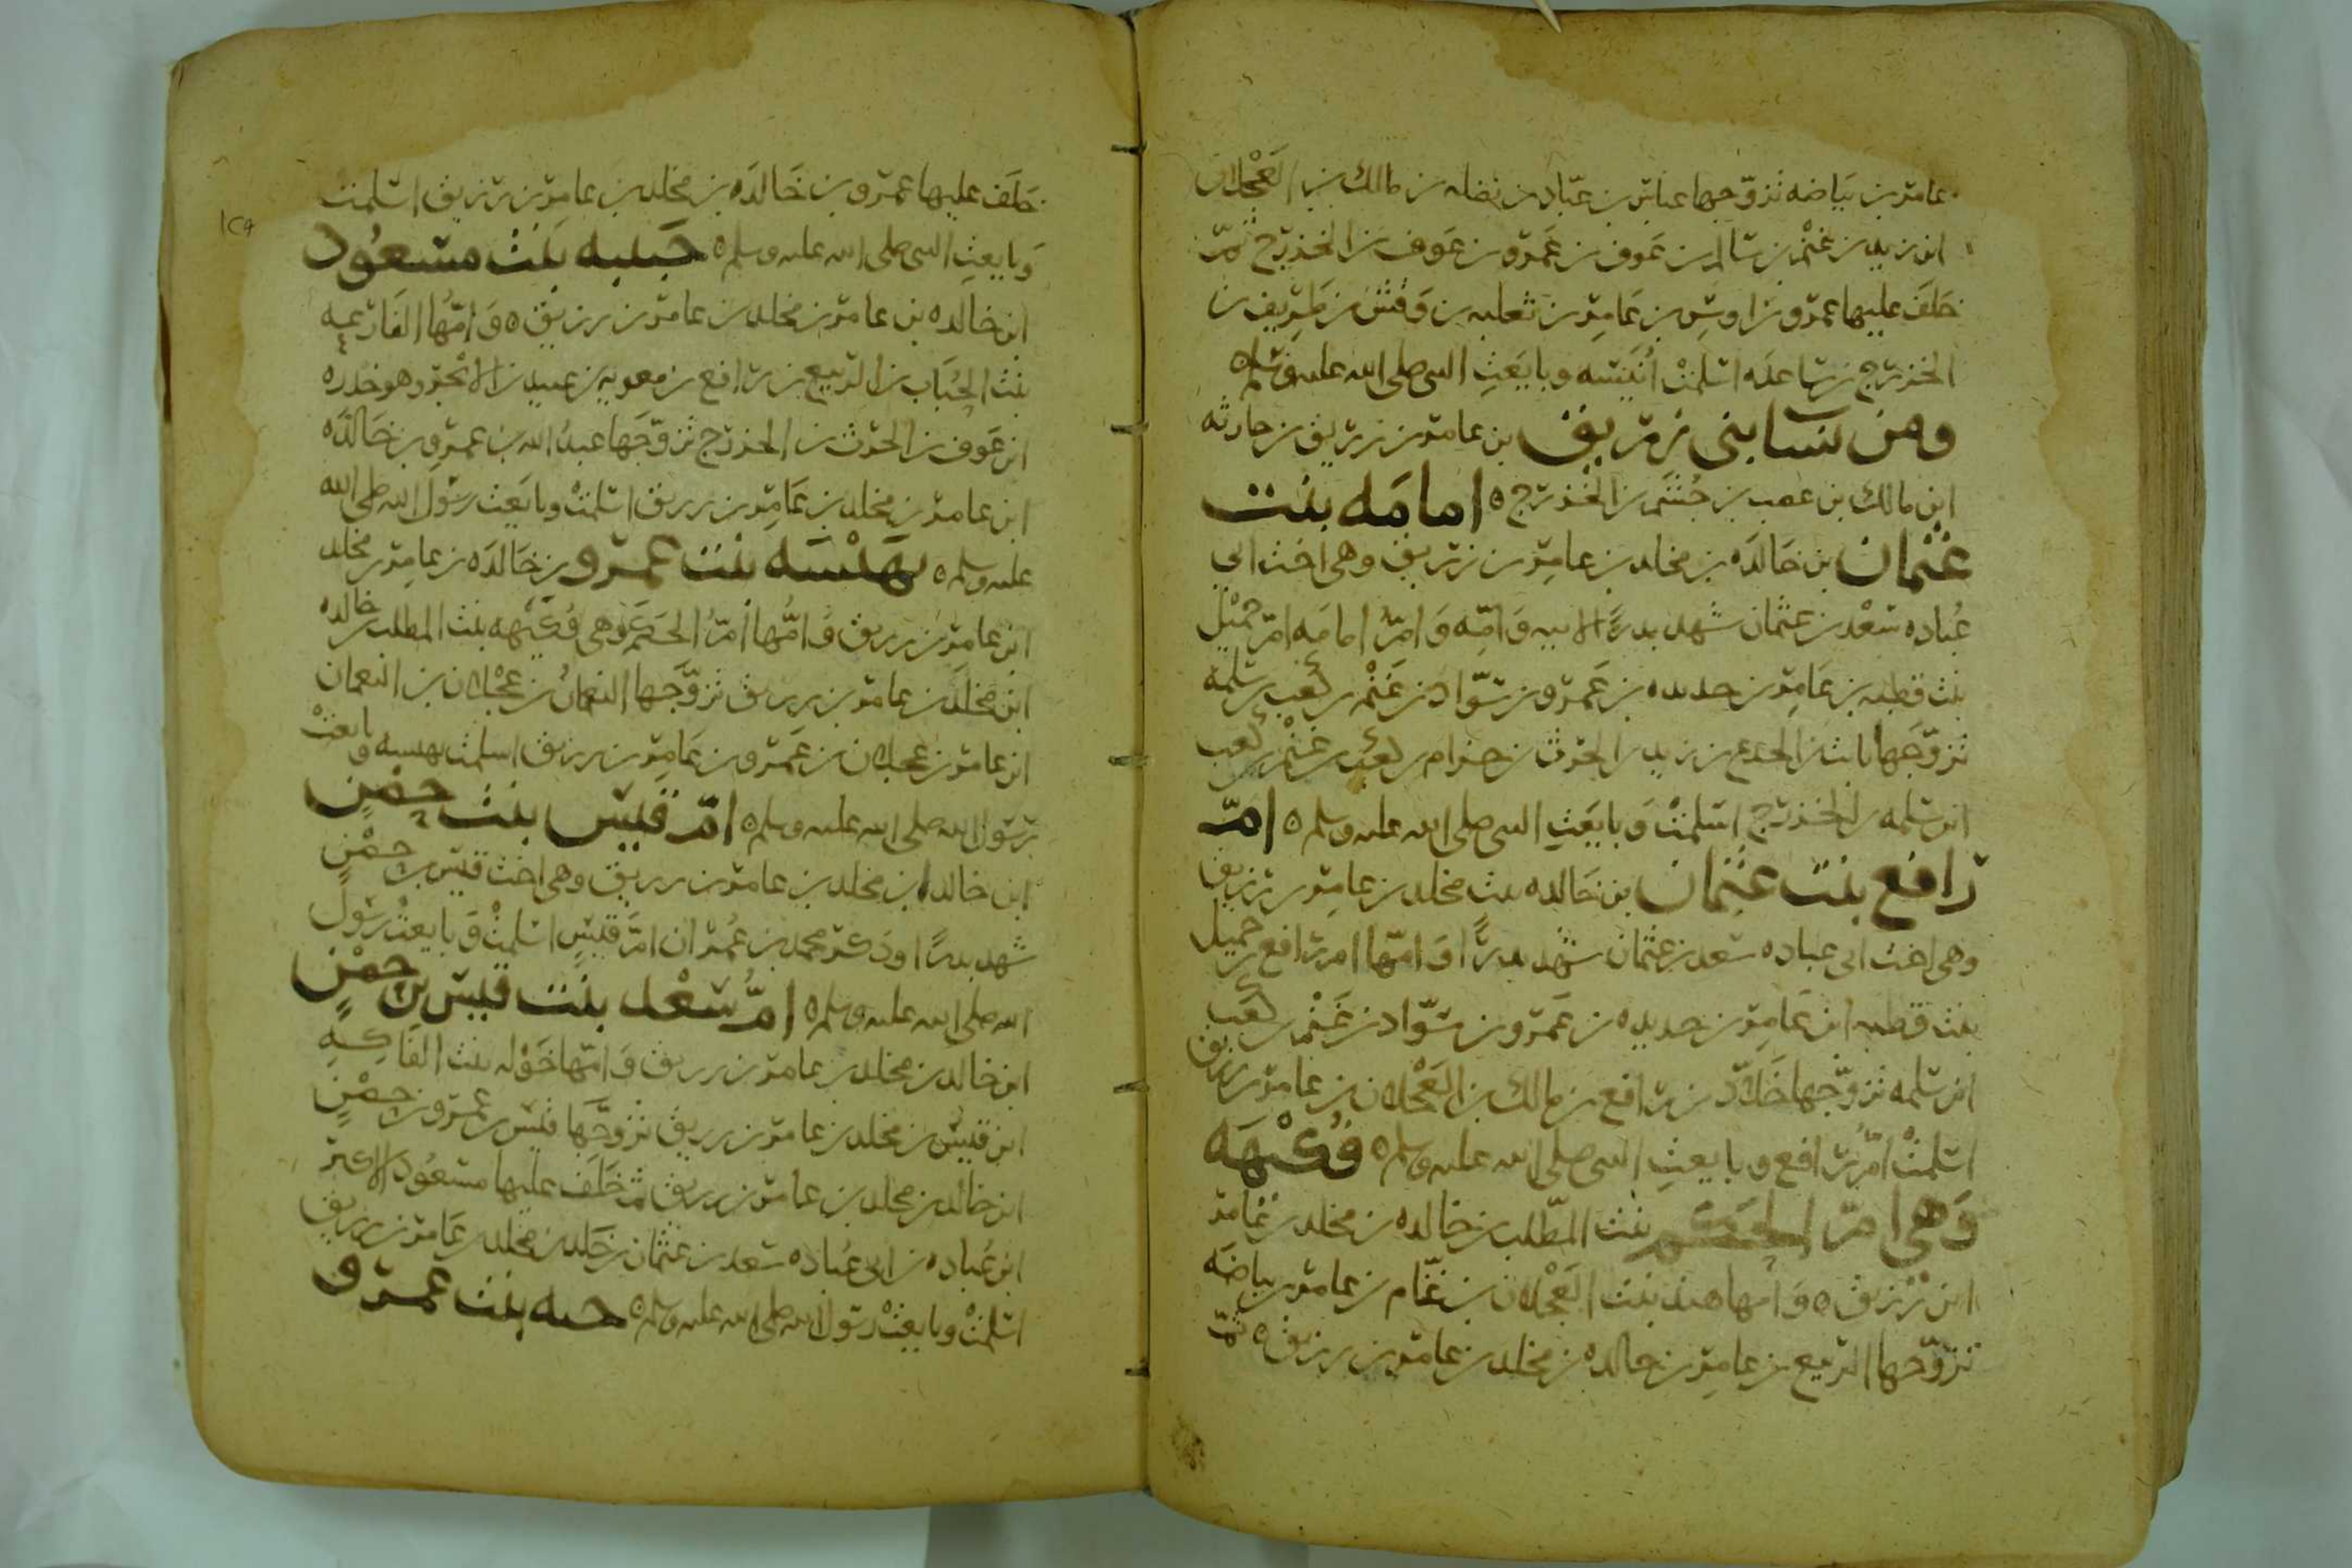 عامر بن بياضه تزوجها عباس بن عباد بن نضله بن مالك بن العجلان
ابن زيد بن غنم بن سالم بن عوف بن عمرو بن عوف بن الخزرج ثم
خلف عليها عمرو بن اوس بن عامر بن ثعلبه بن وقش بن طريف بن
الخزرج بن ساعده اسلمت انيسه وبايعت النبي صلى الله عليه وسلم ه
ومن نسا بني زريق بن عامر بن زريق بن حارثه
ابن مالك بن غضب بن جشم بن الخزرج ه امامه بنت
عثمان بن خالده بن مخلد بن عامر بن زريق وهي اخت ابي
عباده سعد بن عثمان شهد بدرا لابيه وامه وام امامه ام جميل
بنت قطبه بن عامر بن حديده بن عمرو بن سواد بن غنم بن كعب بن سلمه
تزوجها ثابت بن الجذع بن زيد بن الحرث بن حرام بن كعب بن غنم بن كعب
ابن سلمه بن الخزرج اسلمت وبايعت النبي صلى الله عليه وسلم ه ام
رافع بنت عثمان بن خالده بنت مخلد بن عامر بن زريق
وهي اخت ابي عباده سعد بن عثمان شهد بدرا وامها ام رافع بن جميل
بنت قطبه ابن عامر بن حديده بن عمرو بن سواد بن غنم بن كعب
ابن سلمه تزوجها خلاد بن رافع بن مالك بن العجلان بن عامر بن زريق
اسلمت ام رافع وبايعت النبي صلى الله عليه وسلم ه فكيهه
وهي ام الحكم بنت المطلب بن خالده بن مخلد بن عامر
ابن زريق ه وامها هند بنت العجلان بن غنام بن عامر بن بياضه
تزوجها الربيع بن عامر بن خالده بن مخلد بن عامر بن زريق ه ثم
١٢٩
خلف عليها عمرو بن خالده بن مخلد بن عامر بن زريق اسلمت
وبايعت النبي صلى الله عليه وسلم ه حبيبه بنت مسعود
ابن خالده بن عامر بن مخلد بن عامر بن زريق ه وامها الفارعه
بنت الحباب بن الربيع بن رافع بن معويه بن عبيد بن الابجر وهو خدره
ابن عوف بن الحرث بن الخزرج تزوجها عبد الله بن عمرو بن خالده
ابن عامر بن مخلد بن عامر بن زريق اسلمت وبايعت رسول الله صلى الله
عليه وسلم ه بهيسه بنت عمرو بن خالده بن عامر بن مخلد
ابن عامر بن زريق وامها ام الحكم وهي فكيهه بنت المطلب بن خالده
ابن مخلد بن عامر بن زريق تزوجها النعمان بن عجلان بن النعمان
ابن عامر بن عجلان بن عمرو بن عامر بن زريق اسلمت بهيسه وبايعت
رسول الله صلى الله عليه وسلم ه ام قيس بنت حصن
ابن خالد بن مخلد بن عامر بن زريق وهي اخت قيس بن حصن
شهد بدرا وذكر محمد بن عمر ان ام قيس اسلمت وبايعت رسول
الله صلى الله عليه وسلم ه ام سعد بنت قيس بن حصن
ابن خالد بن مخلد بن عامر بن زريق وامها خوله بنت الفاكه
ابن قيس بن مخلد بن عامر بن زريق تزوجها قيس بن عمرو بن حصن
ابن خالد بن مخلد بن عامر بن زريق ثم خلف عليها مسعود الاكبر
ابن عباده بن ابي عباده سعد بن عثمان بن خلد بن مخلد بن عامر بن زريق
اسلمت وبايعت رسول الله صلى الله عليه وسلم ه حبه بنت عمرو